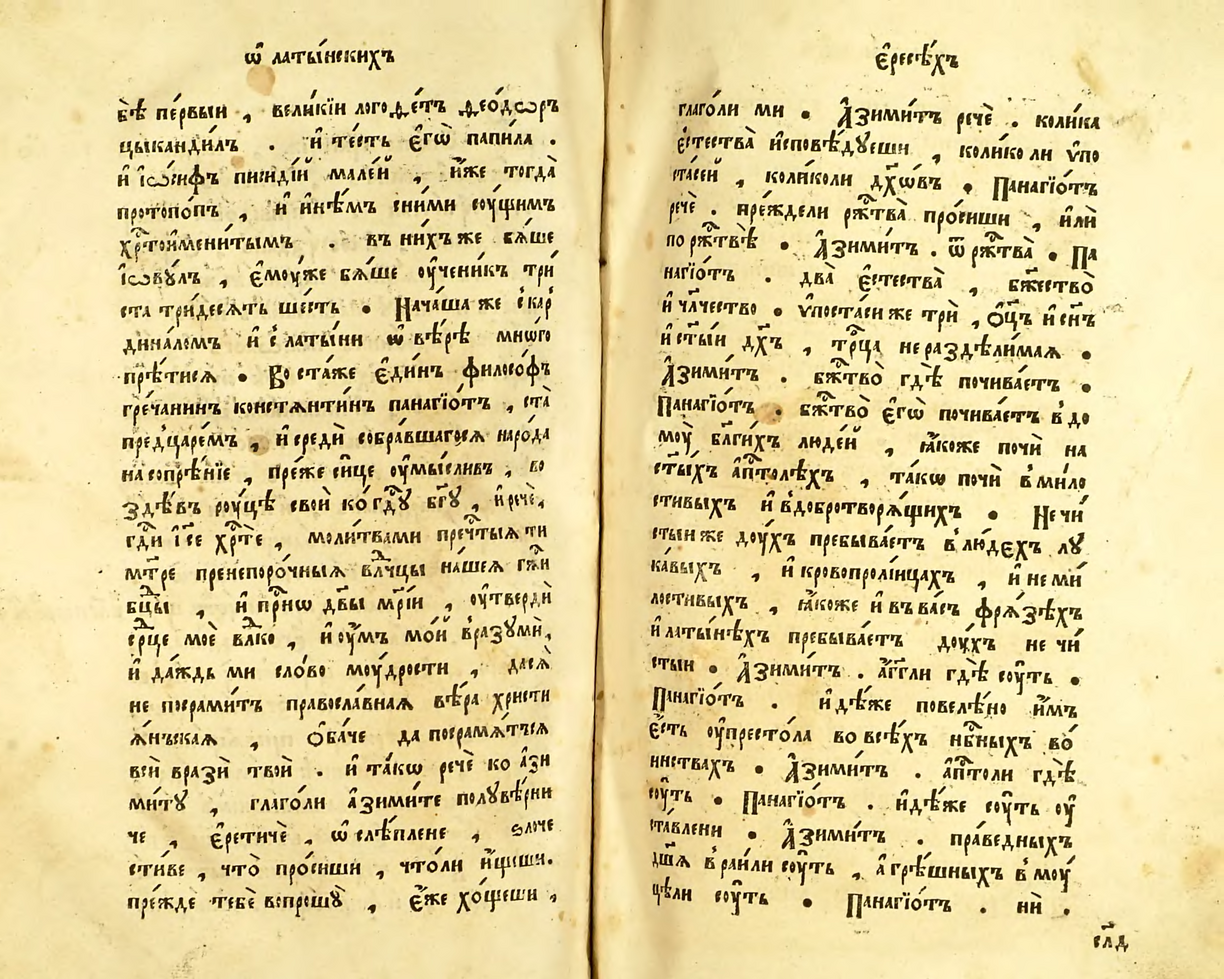 ѡ҆ латы́нскихъ
бѣ̀ пе́рвыи , вели́кїи логоѳе́тъ ѳео́дѡръ
цыканди́лъ . и҆ те́сть є҆гѡ̀ папи́ла .
и҆ і҆ѡ́сифъ писиді́й мале́й , и҆́же тогда̀
протопо́пъ , и҆ и҆нѣ́мъ сни́ми сѹ́щимъ
хрⷭ҇тоимени́тымъ . въ ни́хъ же бѧ́ше
і҆ѡвꙋ́лъ , є҆мꙋ́же бѧ́ше ѹ҆чени́къ три́
ста три́десѧть ше́сть • Нача́ша же с кар
дина́ломъ и҆ с латы́ни ѡ҆ вѣ́рѣ мно́го
прѣ́тисѧ • Воста́же є҆ди́нъ фило́со́фъ
гре́чанинъ констѧнти́нъ панагїѡ́тъ , ста̀
предцаре́мъ , и҆ средѝ собра́вшагосѧ наро́да
на сопрѣ́нїе , пре́же си́це ѹ҆мы́сливъ , во
здѣ́въ рѹ́цѣ свои́ ко гдⷭ҇ꙋ бг҃ꙋ , и҆ речѐ,
гдⷭ҇и і҆с҃е хрⷭ҇те , моли́твами пречⷭ҇тыѧ ти
мт҃ре пренепоро́чныѧ влⷣчцы на́шеѧ гж҃и
бцⷣы , и҆ прⷭ҇нѡ дв҃ы мр҃їи , ѹ҆твердѝ
срⷣце моѐ влⷣко , и҆ ѹ҆́мъ мо́й вразꙋмѝ,
и҆ да́ждь ми сло́во мѹ́дрости , да сѧ̀
не посрами́тъ правосла́внаѧ вѣ́ра христи
ѧ́нъскаѧ , Ѻ҆ба́че да посрамѧ́тъсѧ
всѝ вразѝ твоѝ . и҆ та́кѡ речѐ ко а҆зи
ми́тꙋ , глаго́ли а҆зими́те полꙋвѣ́рни
че , є҆ретичѐ , ѡ҆слѣ́плене , ѕлоче
сти́ве , что̀ про́сиши , что́ли и҆́щеши.
пре́жде тебѐ вопрошꙋ̀ , є҆́же хо́щеши ,
є҆ресѣ́хъ
глаго́ли ми • А҆зими́тъ речѐ . коли́ка
є҆стества̀ и҆сповѣ́дꙋеши , коли́ко ли ѵ҆по
ста́сей , коли́коли дх҃ѡ́въ • Панагїѡ́тъ
речѐ . пре́ждели ржⷭ҇тва̀ про́сиши , и҆лѝ
по ржⷭ҇твѣ̀ • А҆зими́тъ . ѿ ржⷭ҇тва̀ • Па
нагїѡ́тъ . два̀ є҆стества̀ , бж҃ество̀
и҆ чл҃чество • ѵ҆поста́си же трѝ , Ѻ҆ц҃ъ и҆ сн҃ъ
и҆ ст҃ы́и дх҃ъ , трⷪ҇ца нераздѣли́маѧ •
А҆зими́тъ . бжⷭ҇тво̀ гдѣ̀ почива́етъ •
Панагїѡ́тъ . бжⷭ҇тво̀ є҆гѡ̀ почива́етъ в до
мѹ̀ бл҃ги́хъ люде́й , ꙗ҆́коже почѝ на
ст҃ы́хъ а҆пⷭ҇толѣхъ , та́кѡ почѝ в мило
сти́выхъ и҆ в добротворѧ́щихъ • Нечи́
стыи же дѹ́хъ пребыва́етъ в лю́дехъ лꙋ
ка́выхъ , и҆ кровопролі́ицахъ , и҆ не ми́
лостивыхъ , ꙗ҆́коже и҆ въ ва́съ фрѧ́зѣхъ
и҆ латы́нѣхъ пребыва́етъ дѹ́хъ не чи́
стыи • А҆зими́тъ . а҆́гг҃ли гдѣ̀ сѹ́ть •
Панагїѡ́тъ . и҆дѣ́же повелѣ́но и҆̀мъ
є҆́сть ѹ҆престо́ла во всѣ́хъ нбⷭ҇ныхъ во́
инствахъ • А҆зими́тъ . а҆пⷭ҇толи гдѣ̀
сѹ́ть • Панагїѡ́тъ . и҆дѣ́же сѹ́ть ѹ҆
ста́влени • А҆зими́тъ . пра́ведныхъ
дш҃ѧ в раи́ли сѹ́ть , а҆ грѣ́шныхъ в мѹ́
цѣли сѹ́ть • Панагїѡ́тъ . нѝ .
слⷣ